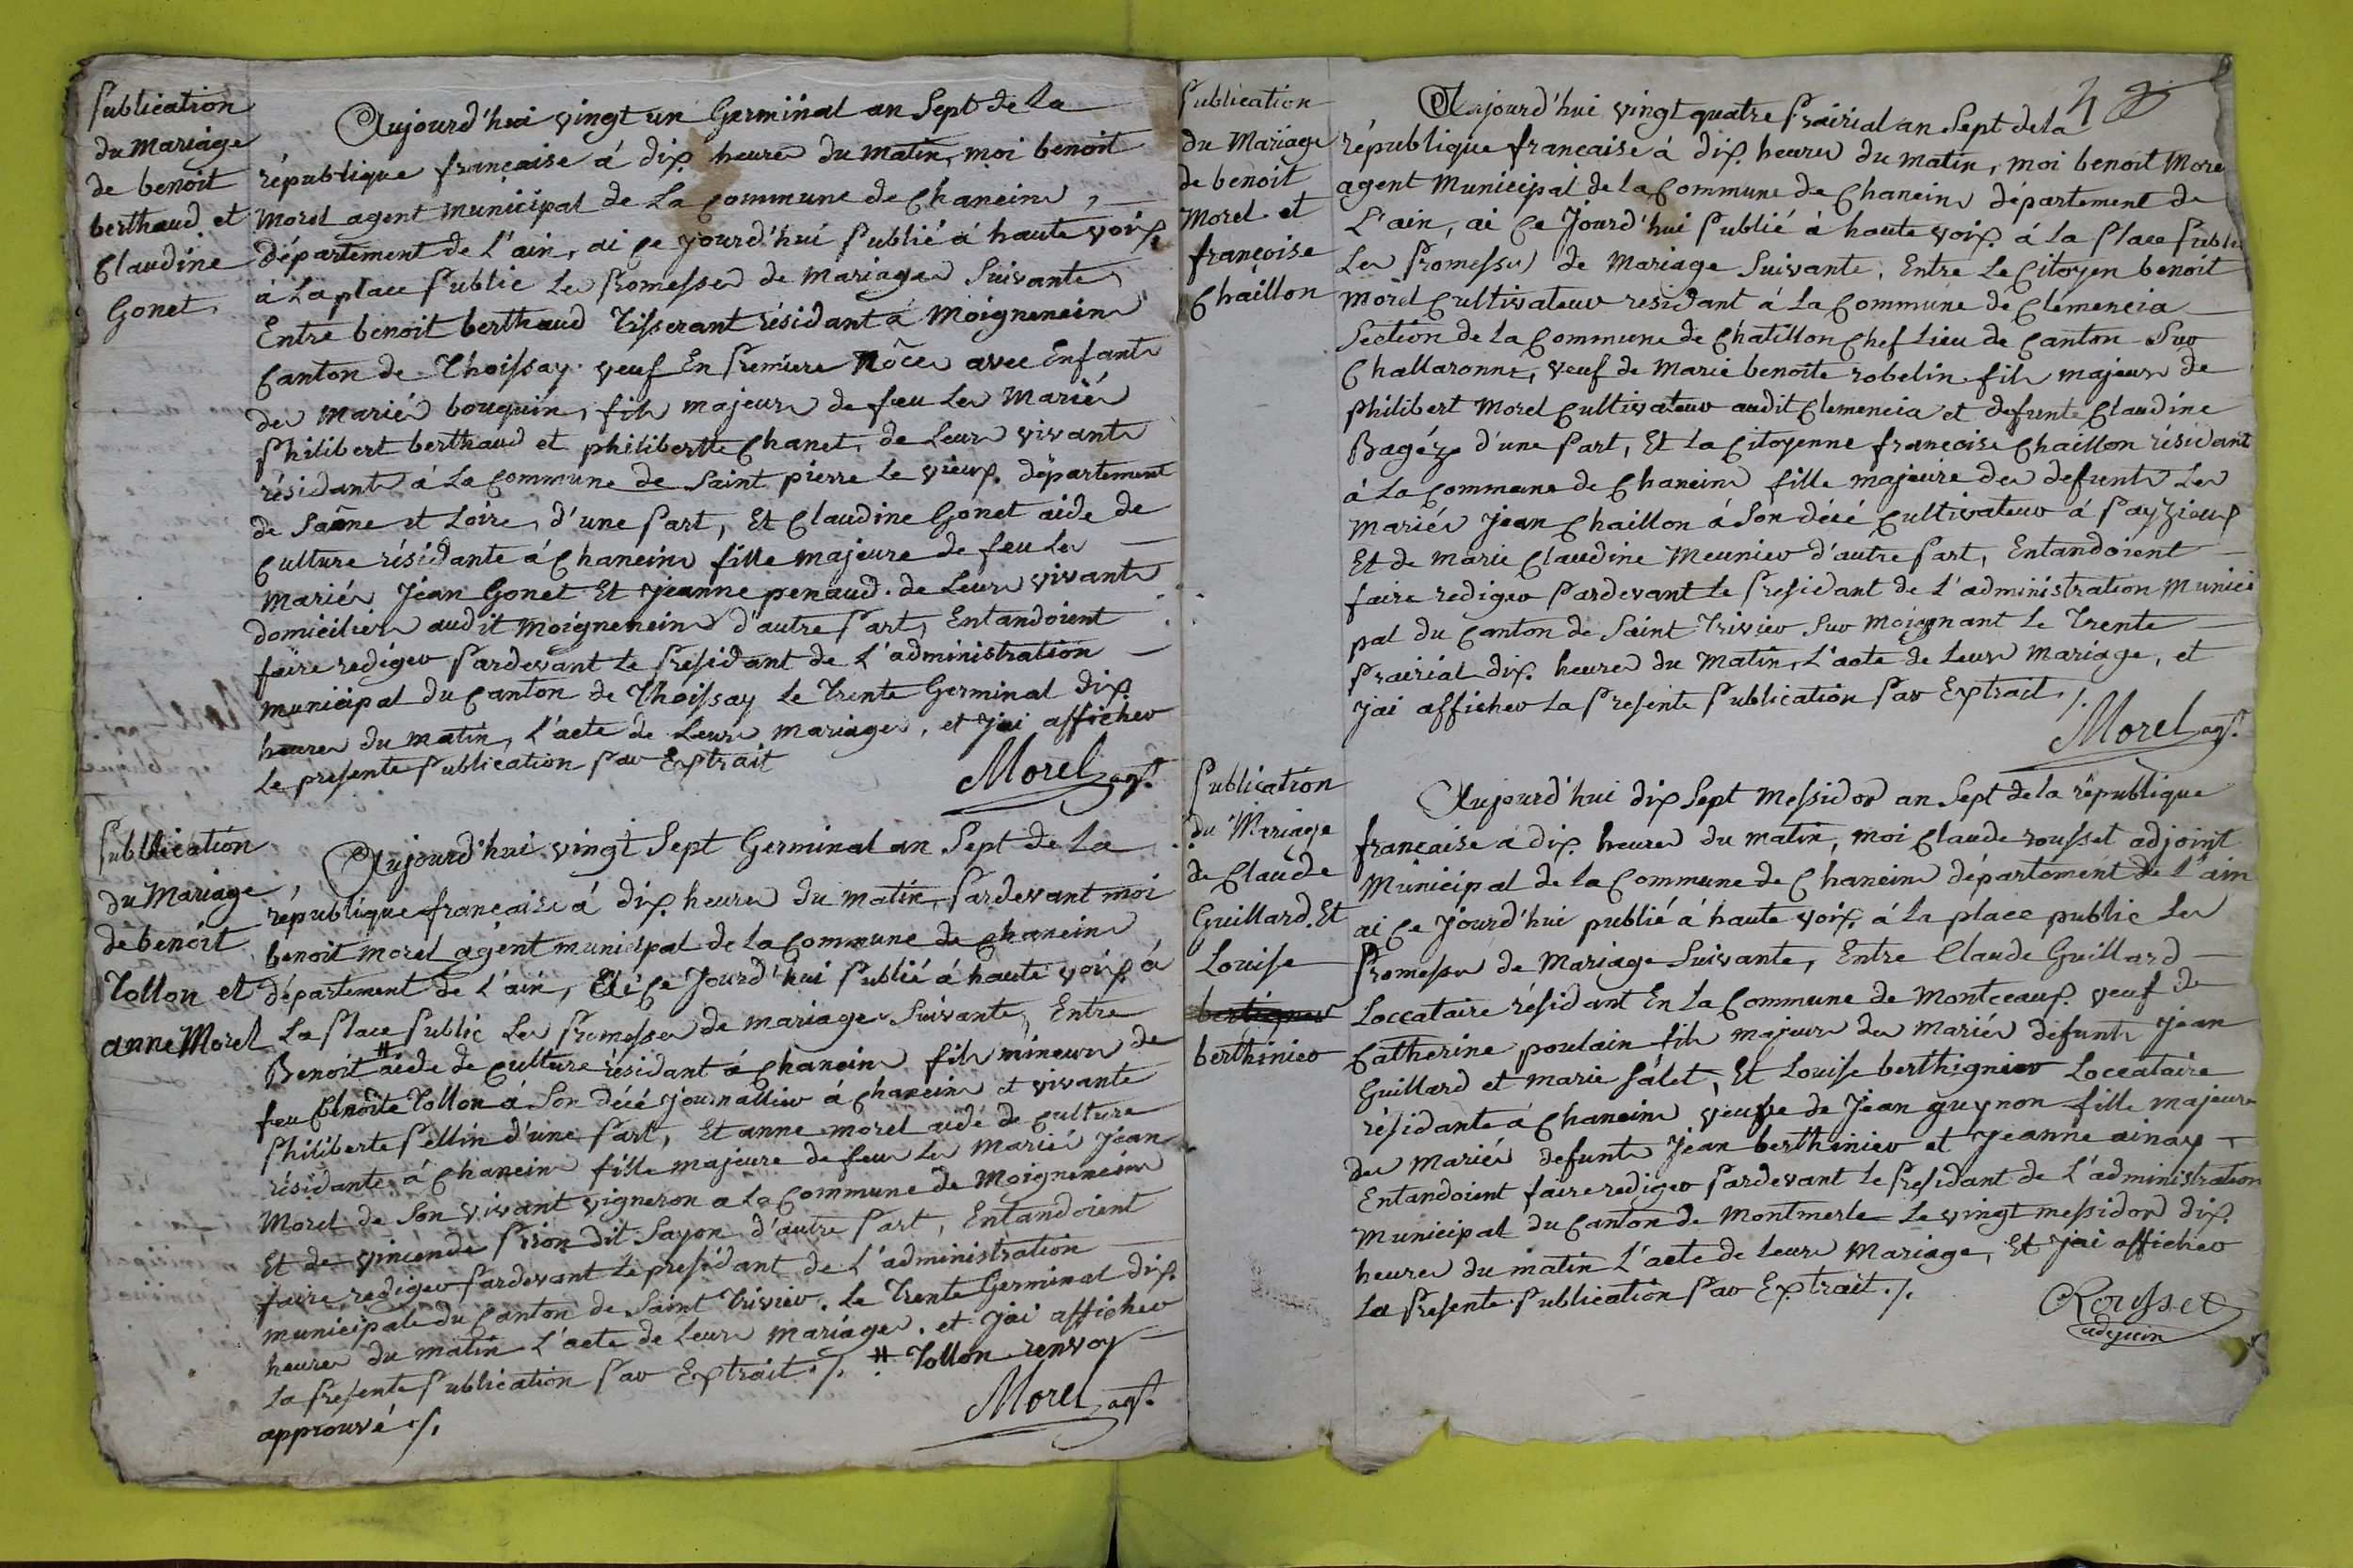 Publication
du Mariage
de benoit
berthaud et
Claudine
Gonet.
Aujourd'hui vingt un Germinal an Sept de la
république francaise á dix heures du matin, moi benoit
Morel agent municipal de la Commune de Chaneins,
département de L'ain, ai ce jourd'hui publié á haute voix
á La place public les promesses de mariages Suivantes
Entre benoit berthaud Tisserant résidant á Moigneneins
Canton de Thoissay veuf En premiere Nôces avec Enfants
des mariés bouquin, fils majeurs de feu les Mariés
Philibert berthaud et philibertte Chanet, de Leurs vivants
résidants á la Commune de Saint pierre le vieux département
de Saône et Loire, d'une part, Et Claudine Gonet aide de
Culture résidante á Chaneins fille majeure de feu les
mariés Jean Gonet Et Jeanne penaud de Leurs vivants
domiciliers audit Moigneneins d'autre part, Entandoient
faire rediger pardevant le president de L'administration
municipal du Canton de Thoissay Le Trente Germinal dix
heures du matin, L'acte de Leurs mariages, et j'ai afficher
Le presente publication par Extrait
Morel agt.
Publication
du Mariage
de benoit
Tollon et
anne Morel
Aujourd'hui vingt Sept Germinal an Sept de La
république francaise á dix heures du matin, pardevant moi
benoit morel agent municipal de la Commune de Chaneins
département de L'ain, Ai ce Jourd'hui publié á haute voix á
La place public Les promesses de mariages Suivantes, Entre
Benoit # aide de Culture résidant á Chaneins fils mineurs de
feu Benoîte Tollon á Son décé journallier á chaneins et vivante
Philiberte Pellin d'une part, Et anne morel aide de Culture
résidante á Chaneins fille majeure de feu les Mariés Jean
Morel de Son vivant vigneron a la Commune de Moigneneins
Et de vincende piron dit Sayon d'autre part, Entandoient
faire rediger pardevant le president de L'administration
municipale du Canton de Saint Trivier. Le Trente Germinal dix
heures du matin L'acte de Leurs mariages, et j'ai afficher
La presente publication par Extrait ./. # Tollon renvoy
approuvé ./.
Morel agt.
4
Publication
du Mariage
de benoit
Morel et
françoise
Chaillon
Aujourd'hui vingt quatre prairial an Sept de la
république francaise á dix heures du matin, moi benoit More
agent Municipal de la Commune de Chaneins département de
L'ain, ai ce Jourd'hui publié à haute voix á La place Publi
Les promesses de Mariage Suivante, Entre Le Citoyen benoit
morel Cultivateur residant á la Commune de Clemencia
Section de la Commune de Chatillon Chef Lieu de Canton Sur
Challaronne, veuf de Marie benoite robelin fils majeurs de
philibert Morel Cultivateur audit Clemencia et defunte Claudine
Bagéz d'une part, Et la Citoyenne françoise Chaillon résidant
á La Commune de Chaneins fille majeure des defunts Les
mariés Jean Chaillon á Son décé Cultivateur á payzieux
Et de marie Claudine Meunier d'autre part, Entandoient
faire rediger pardevant le president de L'administration Munici
pal du Canton de Saint Trivier Sur Moignant Le Trente
prairial dix heures du Matin, L'acte de Leurs mariage, et
j'ai afficher la presente publication par Extrait ./.
Morel agt.
Publication
du Mariage
de Claude
Guillard. Et
Louise
berthinier
Aujourd'hui dix Sept Messidor an Sept de la république
francaise a dix heures du matin, moi Claude rousset adjoint
Municipal de la Commune de Chaneins département de L'ain
ai ce Jourd'hui publié á haute voix á la place public Les
promesses de Mariage Suivante, Entre Claude Guillard
Loccataire résidant En la Commune de Montceaux veuf de
Catherine poulain fils majeurs des mariés defunts Jean
Guillard et marie Sálet, Et Louise berthignier Loccataire
résidante á Chaneins veufve de Jean guynon fille majeure
des mariés defunts Jean berthinier et Jeanne ainay
Entandoient faire rediger pardevant le president de L'administration
Municipal du Canton de Montmerle Le vingt messidor dix
heures du matin L'acte de leurs Mariage, Et j'ai afficher
La presente publication par Extrait ./.
Rousset
adjoin